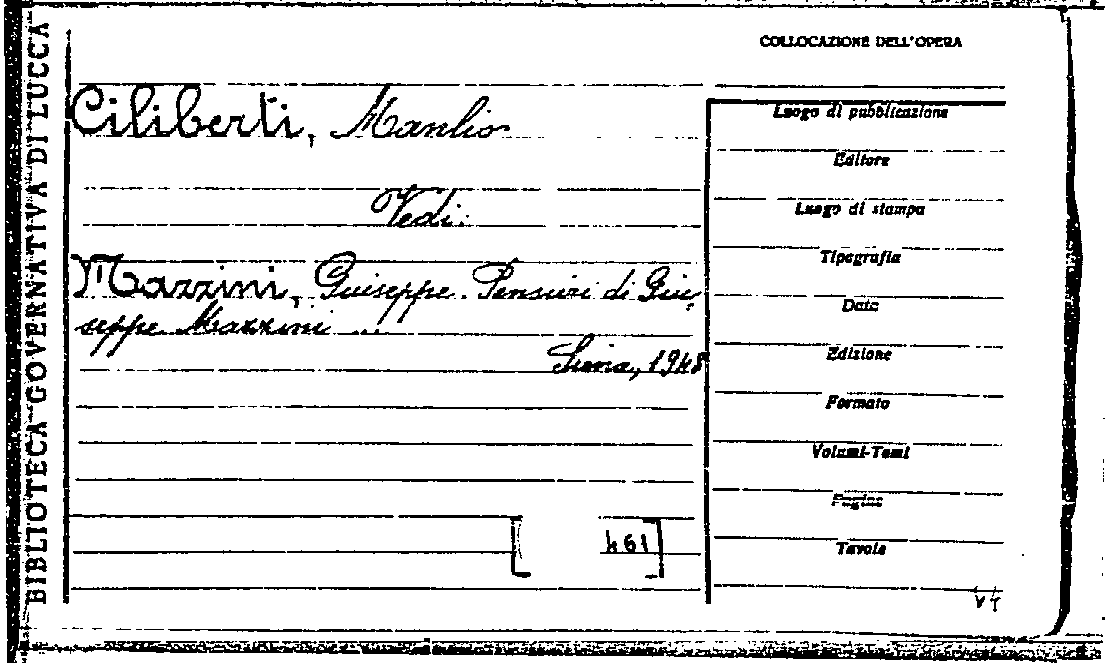 BIBLIOTECA GOVERNATIVA DI LUCCA
COLLOCAZIONE DELL'OPERA
Ciliberti, Manlio
Vedi:
Mazzini, Guiseppe. Pensieri di Giu-
seppe Mazzini ...
Siena, 1948
[ 461]
Luogo di pubblicazione
Editore
Luogo di stampa
Tipografia
Data
Edizione
Formato
Volumi-Tomi
Pagine
Tavole
VT